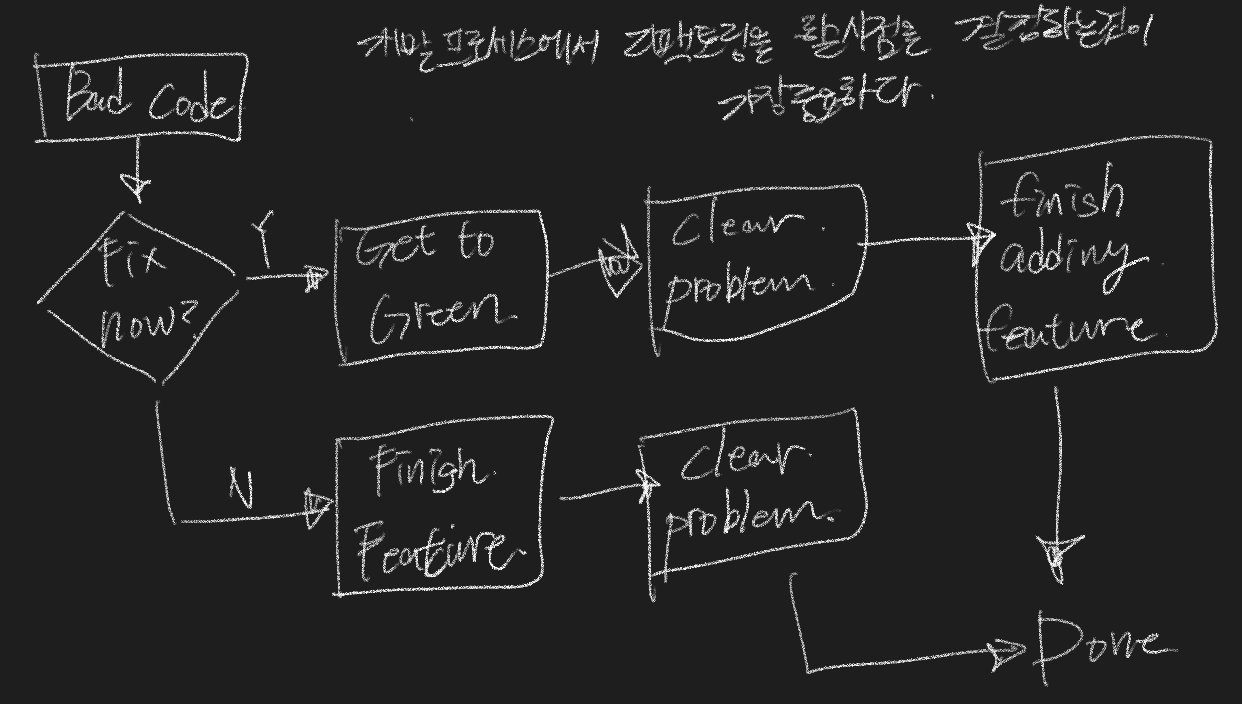 개발 프로세스에서 리팩토링을 할 시점을 결정하는것이
가장중요하다.
Bad Code
Fix
now?
Y
Get to
Green
Clear
problem.
finish
adding
feature.
N
Finish
Feature.
Clear
problem.
Done